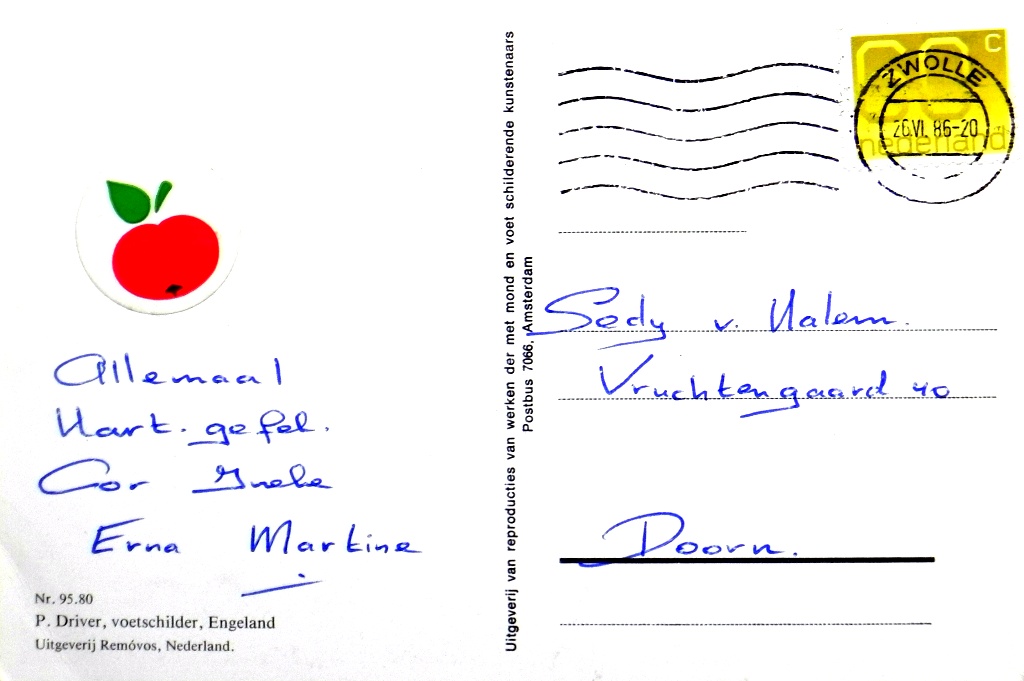 Allemaal
Hart. gefel.
Cor Ineke
Erna Martine
Nr. 95.80
P. Driver, voetschilder, Engeland
Uitgeverij Remóvos, Nederland.
Uitgeverij van reproducties van werken der met mond en voet schilderende kunstenaars
Postbus 7066, Amsterdam
c
nederland
ZWOLLE
26.VI. 86-20
Sody v. Halem.
Vruchtengaard 40
Doorn.